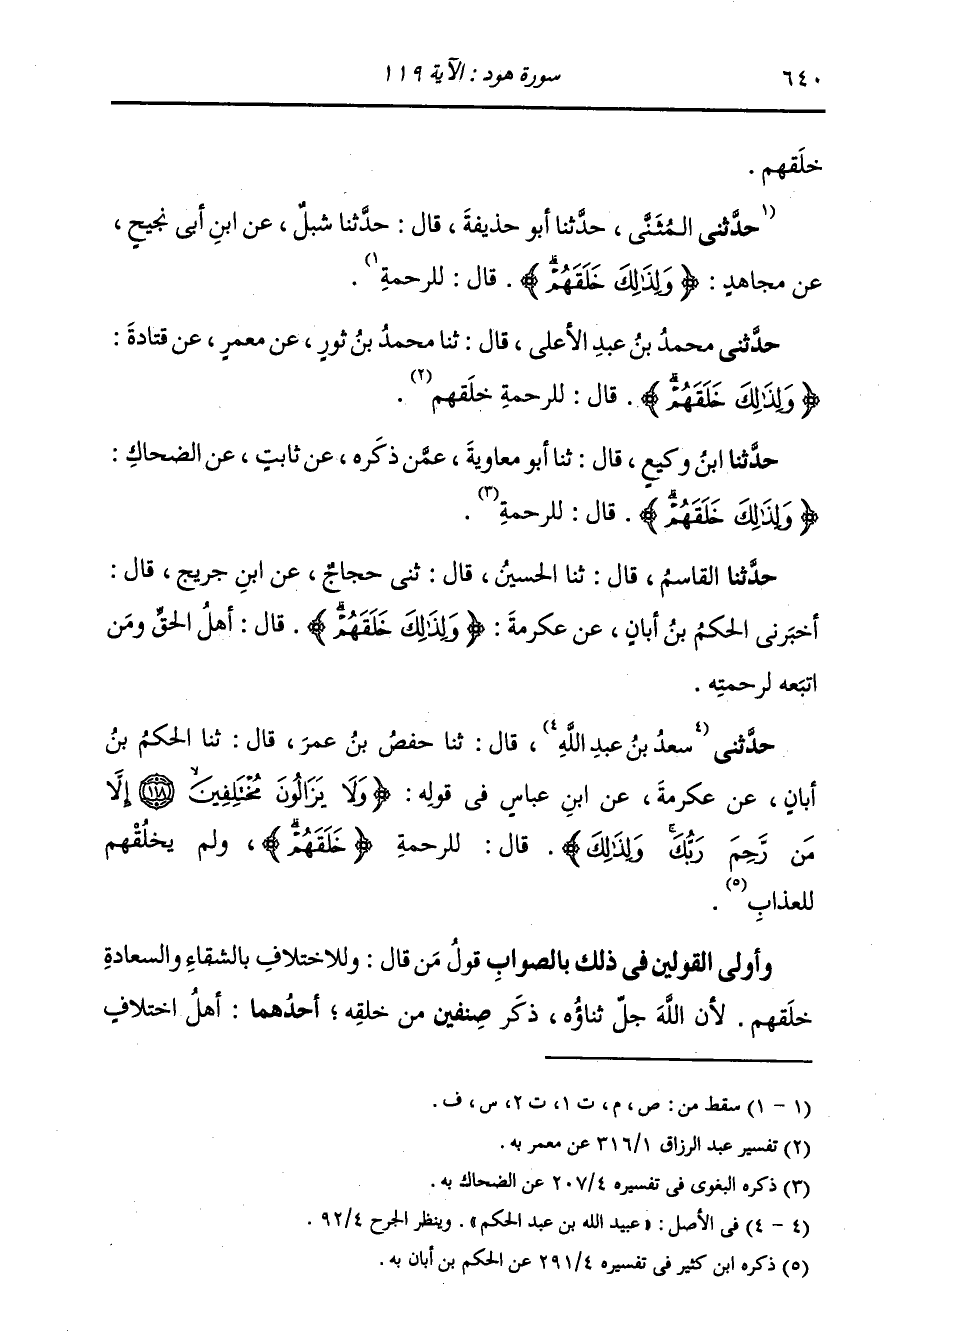 ٦٤٠ سورة هود : الآية ١١٩
خلَقهم .
(١حدَّثنى المُثنَّى ، حدَّثنا أبو حذيفةَ ، قال : حدَّثنا شبلٌ ، عن ابنِ أبى نجيحٍ ،
عن مجاهدٍ : ﴿ وَلِذَٰلِكَ خَلَقَهُمْۗ ﴾ . قال : للرحمةِ١) .
حدَّثنى محمدُ بنُ عبدِ الأعلى ، قال : ثنا محمدُ بنُ ثورٍ ، عن معمرٍ ، عن قتادةَ :
﴿ وَلِذَٰلِكَ خَلَقَهُمْۗ ﴾ . قال : للرحمةِ خلَقهم(٢) .
حدَّثنا ابنُ وكيعٍ ، قال : ثنا أبو معاويةَ ، عمَّن ذكَره ، عن ثابتٍ ، عن الضحاكِ :
﴿ وَلِذَٰلِكَ خَلَقَهُمْۗ ﴾ . قال : للرحمةِ(٣) .
حدَّثنا القاسمُ ، قال : ثنا الحسينُ ، قال : ثنى حجاجٌ ، عن ابنِ جريجٍ ، قال :
أخبَرنى الحكمُ بنُ أبانٍ ، عن عكرمةَ : ﴿ وَلِذَٰلِكَ خَلَقَهُمْۗ ﴾ . قال : أهلُ الحقِّ ومَن
اتبَعه لرحمتِه .
حدَّثنى (٤سعدُ بنُ عبدِ اللَّهِ٤) ، قال : ثنا حفصُ بنُ عمرَ ، قال : ثنا الحكمُ بنُ
أبانٍ ، عن عكرمةَ ، عن ابنِ عباسٍ فى قولِه : ﴿ وَلَا يَزَالُونَ مُخْتَلِفِينَۙ ﴿١١٨﴾ إِلَّا
مَن رَّحِمَ رَبُّكَۚ وَلِذَٰلِكَ ﴾ . قال : للرحمةِ ﴿ خَلَقَهُمْۗ ﴾ ، ولم يخلُقْهم
للعذابِ(٥) .
وأولى القولين فى ذلك بالصوابِ قولُ مَن قال : وللاختلافِ بالشقاءِ والسعادةِ
خلَقهم . لأن اللَّهَ جلّ ثناؤُه ، ذكَر صِنفين من خلقِه ؛ أحدُهما : أهلُ اختلافٍ
(١ - ١) سقط من : ص ، م ، ت ١ ، ت ٢ ، س ، ف .
(٢) تفسير عبد الرزاق ٣١٦/١ عن معمر به .
(٣) ذكره البغوى فى تفسيره ٢٠٧/٤ عن الضحاك به .
(٤ - ٤) فى الأصل : « عبيد الله بن عبد الحكم » . وينظر الجرح ٩٢/٤ .
(٥) ذكره ابن كثير فى تفسيره ٢٩١/٤ عن الحكم بن أبان به .